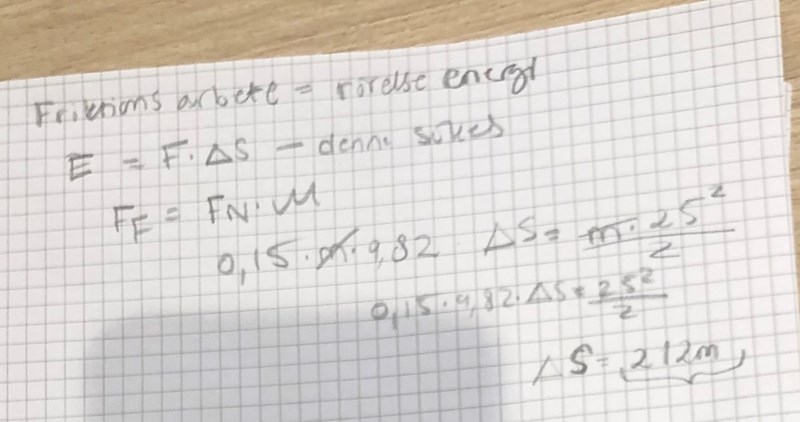 Friktions arbete = rörelse energi
E = F · ΔS – denna sökes
FF = FN · M
0,15 · m · 9,82 ΔS = m · 25²/2
0,15 · 9,82 · ΔS = 25²/2
ΔS = 212m